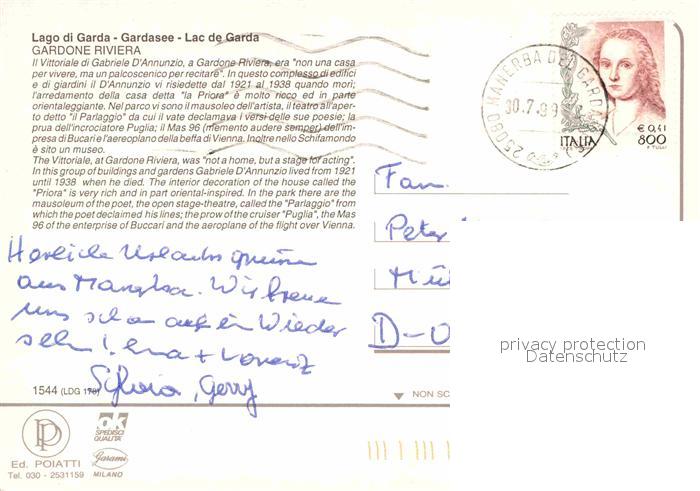 Lago di Garda - Gardasee - Lac de Garda
GARDONE RIVIERA
Il Vittoriale di Gabriele D'Annunzio, a Gardone Riviera, era "non una casa
per vivere, ma un palcoscenico per recitare". In questo complesso di edifici
e di giardini il D'Annunzio vi risiedette dal 1921 al 1938 quando morì;
l'arredamento della casa detta "la Priora" è molto ricco ed in parte
orientaleggiante. Nel parco vi sono il mausoleo dell'artista, il teatro all'aper-
to detto "il Parlaggio" da cui il vate declamava i versi delle sue poesie; la
prua dell'incrociatore Puglia; il Mas 96 (memento audere semper) dell'im-
presa di Bucari e l'aereoplano della beffa di Vienna. Inoltre nello Schifamondo
è sito un museo.
The Vittoriale, at Gardone Riviera, was "not a home, but a stage for acting".
In this group of buildings and gardens Gabriele D'Annunzio lived from 1921
until 1938 when he died. The interior decoration of the house called the
"Priora" is very rich and in part oriental-inspired. In the park there are the
mausoleum of the poet, the open stage-theatre, called the "Parlaggio" from
which the poet declaimed his lines; the prow of the cruiser "Puglia", the Mas
96 of the enterprise of Buccari and the aeroplane of the flight over Vienna.
Herzliche Urlaubsgrüsse
aus Manerba. Wir freuen
uns schon auf ein Wieder
sehn! Lena + Lorenz
Sylvia, Gerry
1544 (LDG 178)
PP
Ed. POIATTI
Tel. 030 - 2531159
OK
SPEDISCI
QUALITÀ
Garami
MILANO
25080 MANERBA DEL GARDA
30.7.99
ITALIA
€ 0,41
800
Fam.
Peter
Mü
D-0
NON SC
privacy protection
Datenschutz